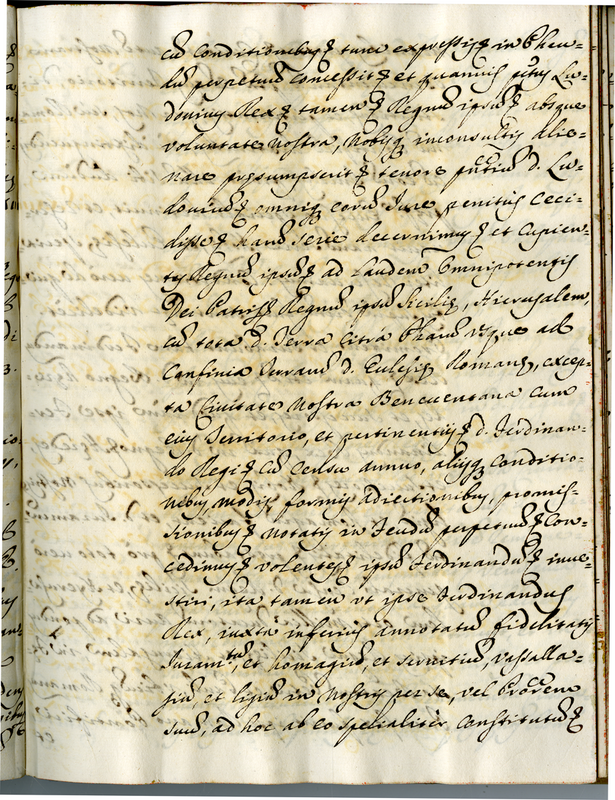 cũ Conditionibus tunc expressis in Pheu-
dũ perpetuũ concessit et quamuis pñtus Lu-
douicus Rex tamen Regnũ ipsũ absque
voluntate nostra, Nobisq inconsultis Alie-
nare presumpserit tenore pñtiũ d. Lu-
douicũ omniq eorũ Iure penitus Ceci-
disse harũ serie decernimus et Cupien-
tes Regnũ ipsũ ad Laudem Omnipotentis
Dei Patris Regnũ ipsũ Sicilie, Hierusalem,
cũ tota d. Terra Citra Pharũ usque ad
Confinia Terrarũ d. Eclesie Romane, excep-
ta Ciuitate nostra Beneuentana cum
eius Territorio, et pertinentiis d. Ferdinan-
do Regi cũ censu annuo, aliisq conditio-
nibus modis, formis adiectionibus, promis-
sionibus notatis in Feudũ perpetuũ Con-
cedimus volentes ipsũ Ferdinandũ inue-
stiri, ita tamen vt ipse Ferdinandus
Rex, iuxta inferius annotatũ fidelitatis
Iuram.tũ, et homagiũ, et seruitiũ, vassalla-
giũ, et ligiũ in nostris per se, vel Procrem
suũ, ad hoc ab eo specialiter Constitutũ